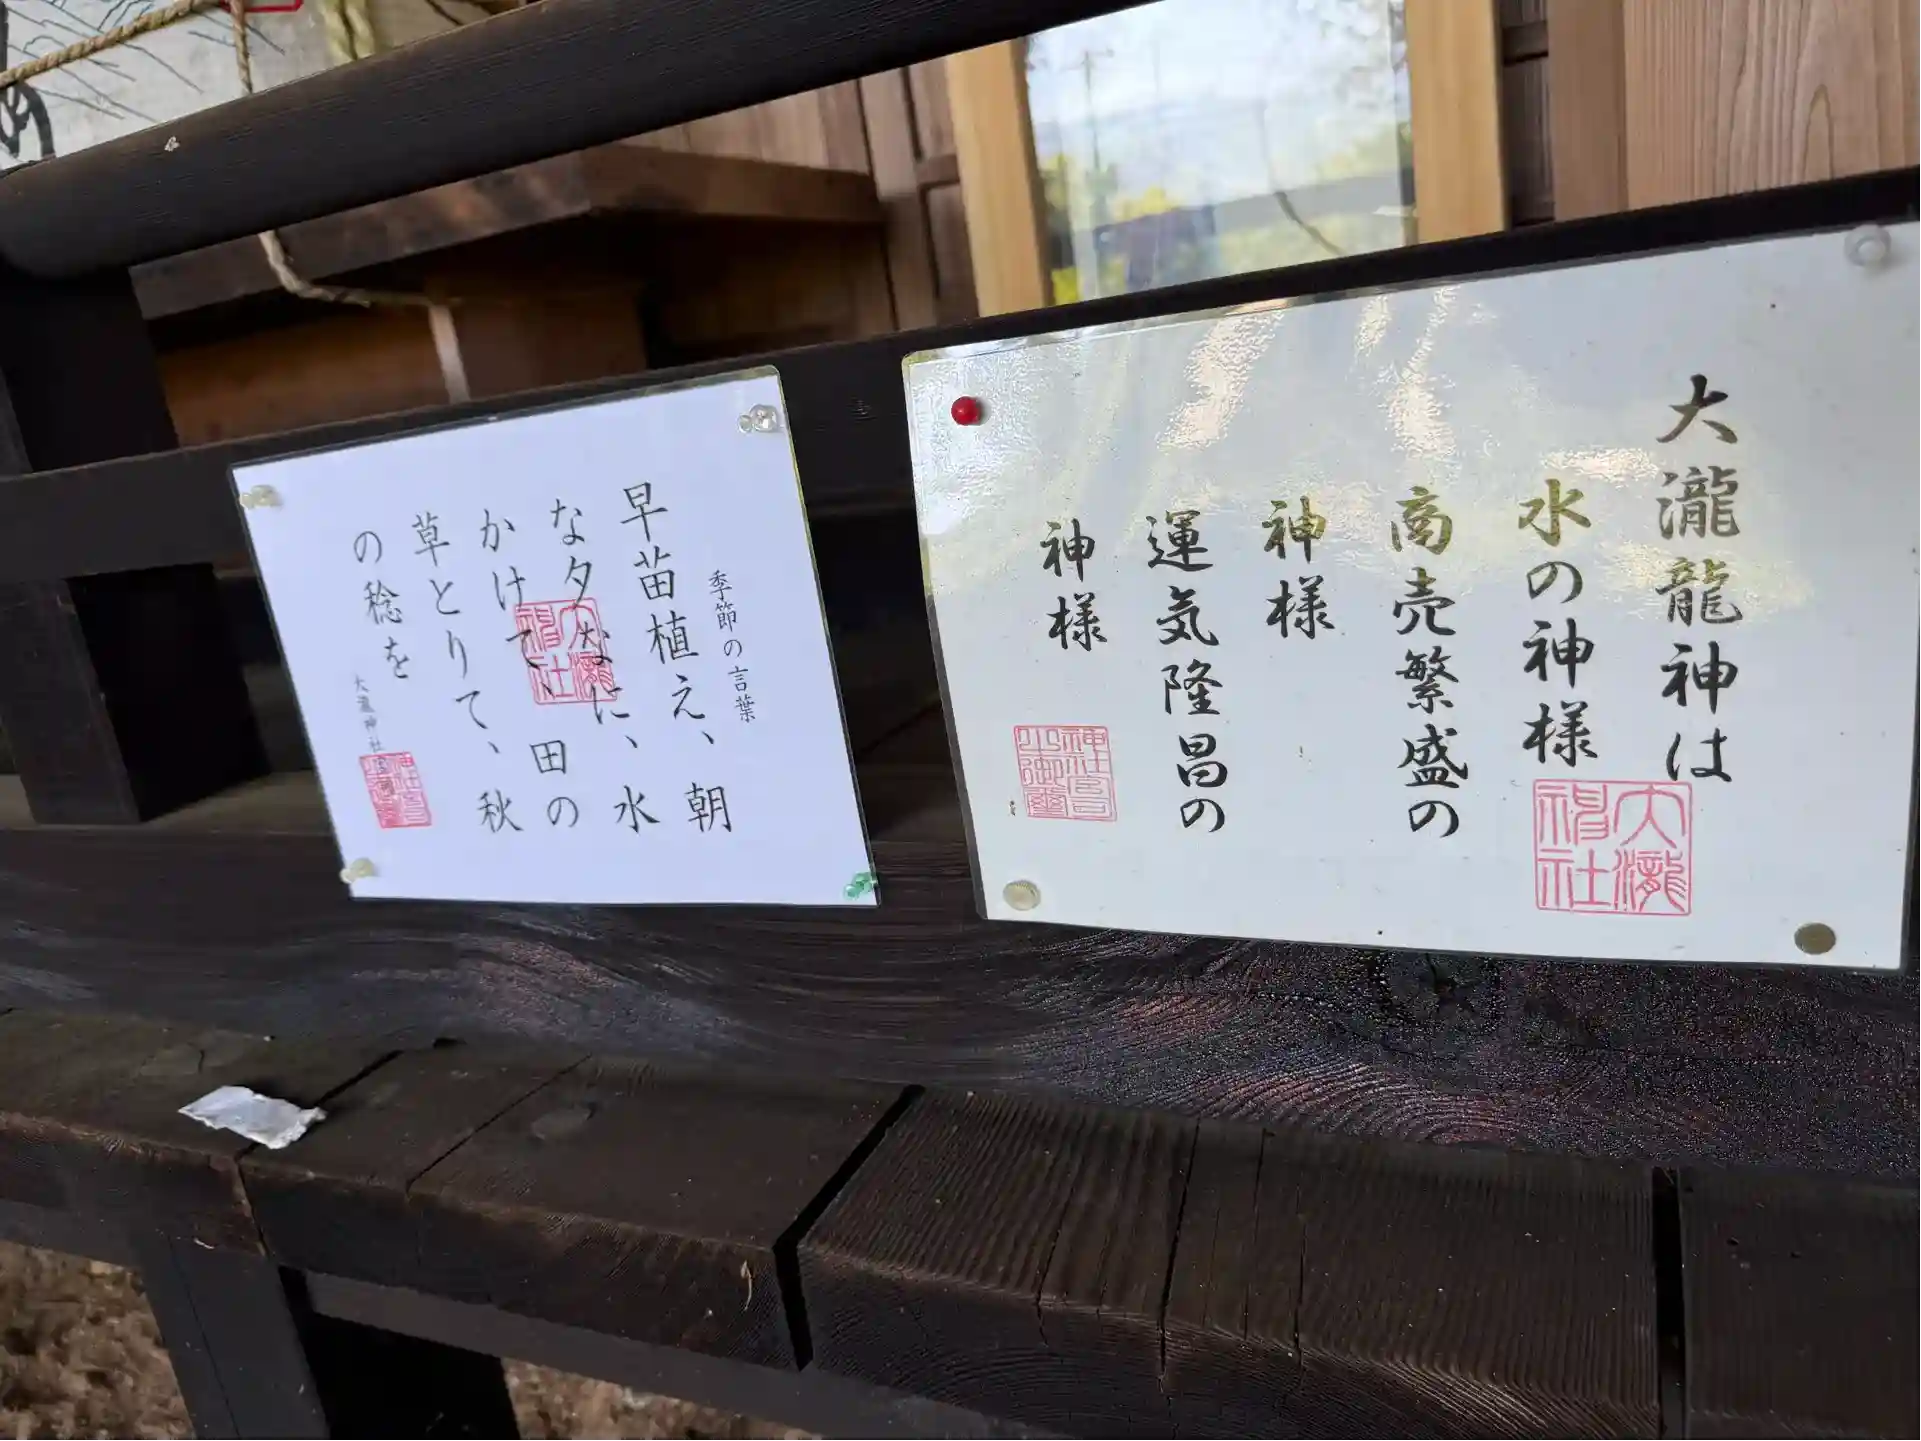 大瀧龍神は
水の神様
商売繁盛の
神様
運気隆昌の
神様
大瀧神社
神社宮司之御璽
季節の言葉
早苗植え、朝
な夕なに、水
かけて、田の
草とりて、秋
の稔を
大瀧神社
大瀧神社